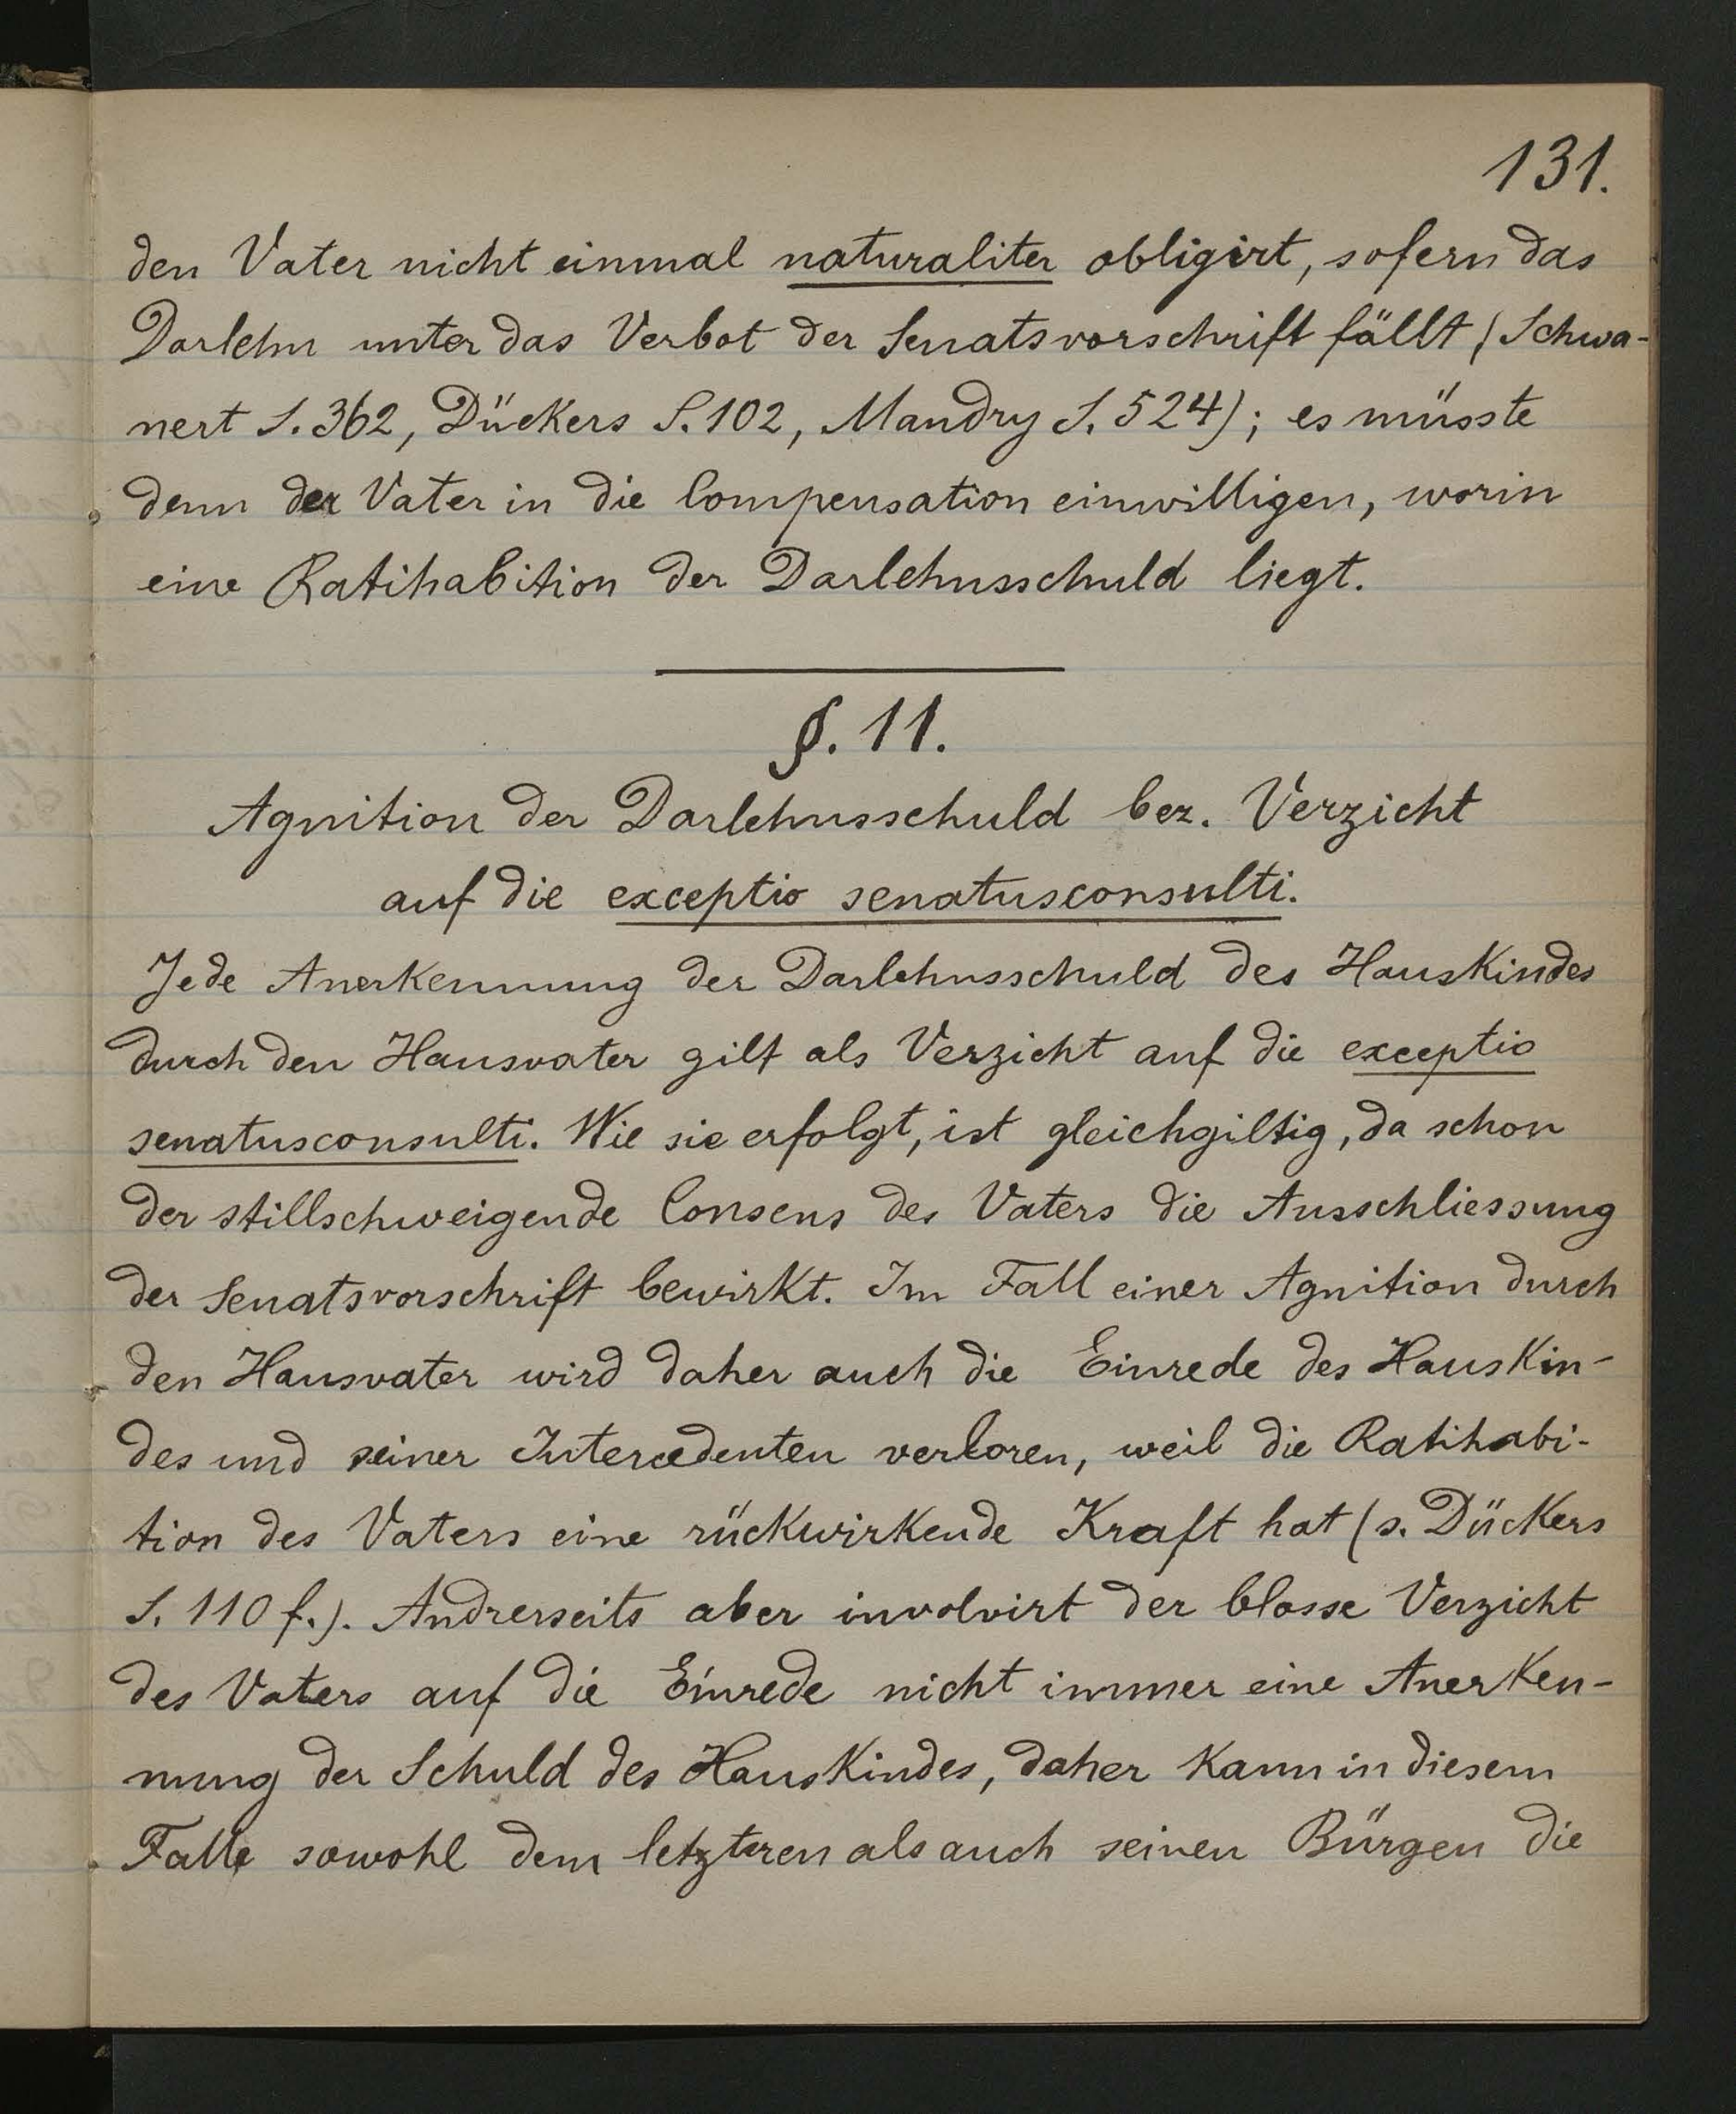 131.
den Vater nicht einmal naturaliter obligirt, sofern das
Darlehn unter das Verbot der Senatsvorschrift fällt (Schwa-
nert S. 362, Dückers S. 102, Mandry S. 524); es müsste
denn der Vater in die Compensation einwilligen, worin
eine Ratihabition der Darlehnsschuld liegt.
§. 11.
Agnition der Darlehnsschuld bez. Verzicht
auf die exceptio senatusconsulti.
Jede Anerkennung der Darlehnsschuld des Hauskindes
durch den Hausvater gilt als Verzicht auf die exceptio
senatusconsulti. Wie sie erfolgt, ist gleichgiltig, da schon
der stillschweigende Consens des Vaters die Ausschliessung
der Senatsvorschrift bewirkt. Im Fall einer Agnition durch
den Hausvater wird daher auch die Einrede des Hauskin-
des und seiner Intercedenten verloren, weil die Ratihabi-
tion des Vaters eine rückwirkende Kraft hat (s. Dückers
S. 110 f.). Andrerseits aber involvirt der blosse Verzicht
des Vaters auf die Einrede nicht immer eine Anerken-
nung der Schuld des Hauskindes, daher kann in diesem
Falle sowohl dem letzteren als auch seinen Bürgen die